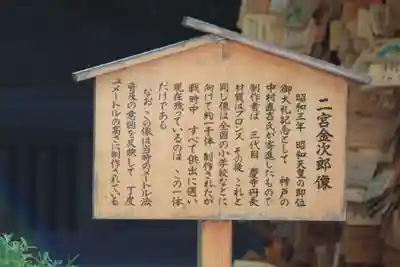 二宮金次郎像
昭和三年 昭和天皇の即位
御大礼記念として 神戸の
中村直吉氏が寄進したもので
制作者は 三代目 慶寺丹長
材質はブロンズ その後 これと
同じ像は全国の小学校などに
向けて約一千体 制作されたが
戦時中 すべて供出に遭い
現在残っているのは この一体
だけである
なお この像は当時のメートル法
普及の意図を反映して 丁度
1メートルの高さに制作されている